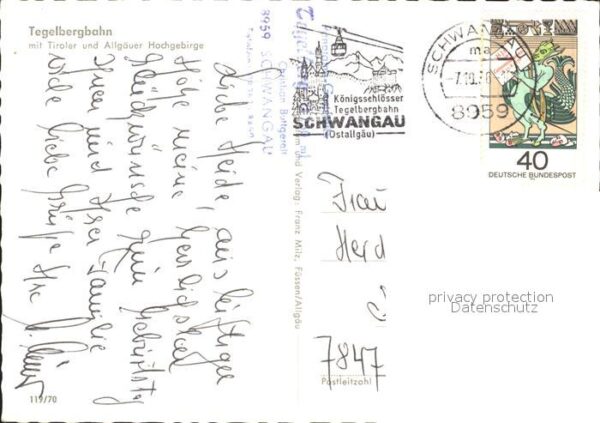 Tegelbergbahn
mit Tiroler und Allgäuer Hochgebirge
Liebe Heide, aus luftiger
Höhe meine herzlichsten
Glückwünsche zum Geburtstag
Ihnen und Ihrer Familie
viele liebe Grüße Ihre
119/70
8959 SCHWANGAU
und Verlag: Franz Milz, Füssen/Allgäu
Königsschlösser
Tegelbergbahn
SCHWANGAU
(Ostallgäu)
SCHWANGAU
8959
40
DEUTSCHE BUNDESPOST
Frau
Herd
7847
Postleitzahl
privacy protection
Datenschutz